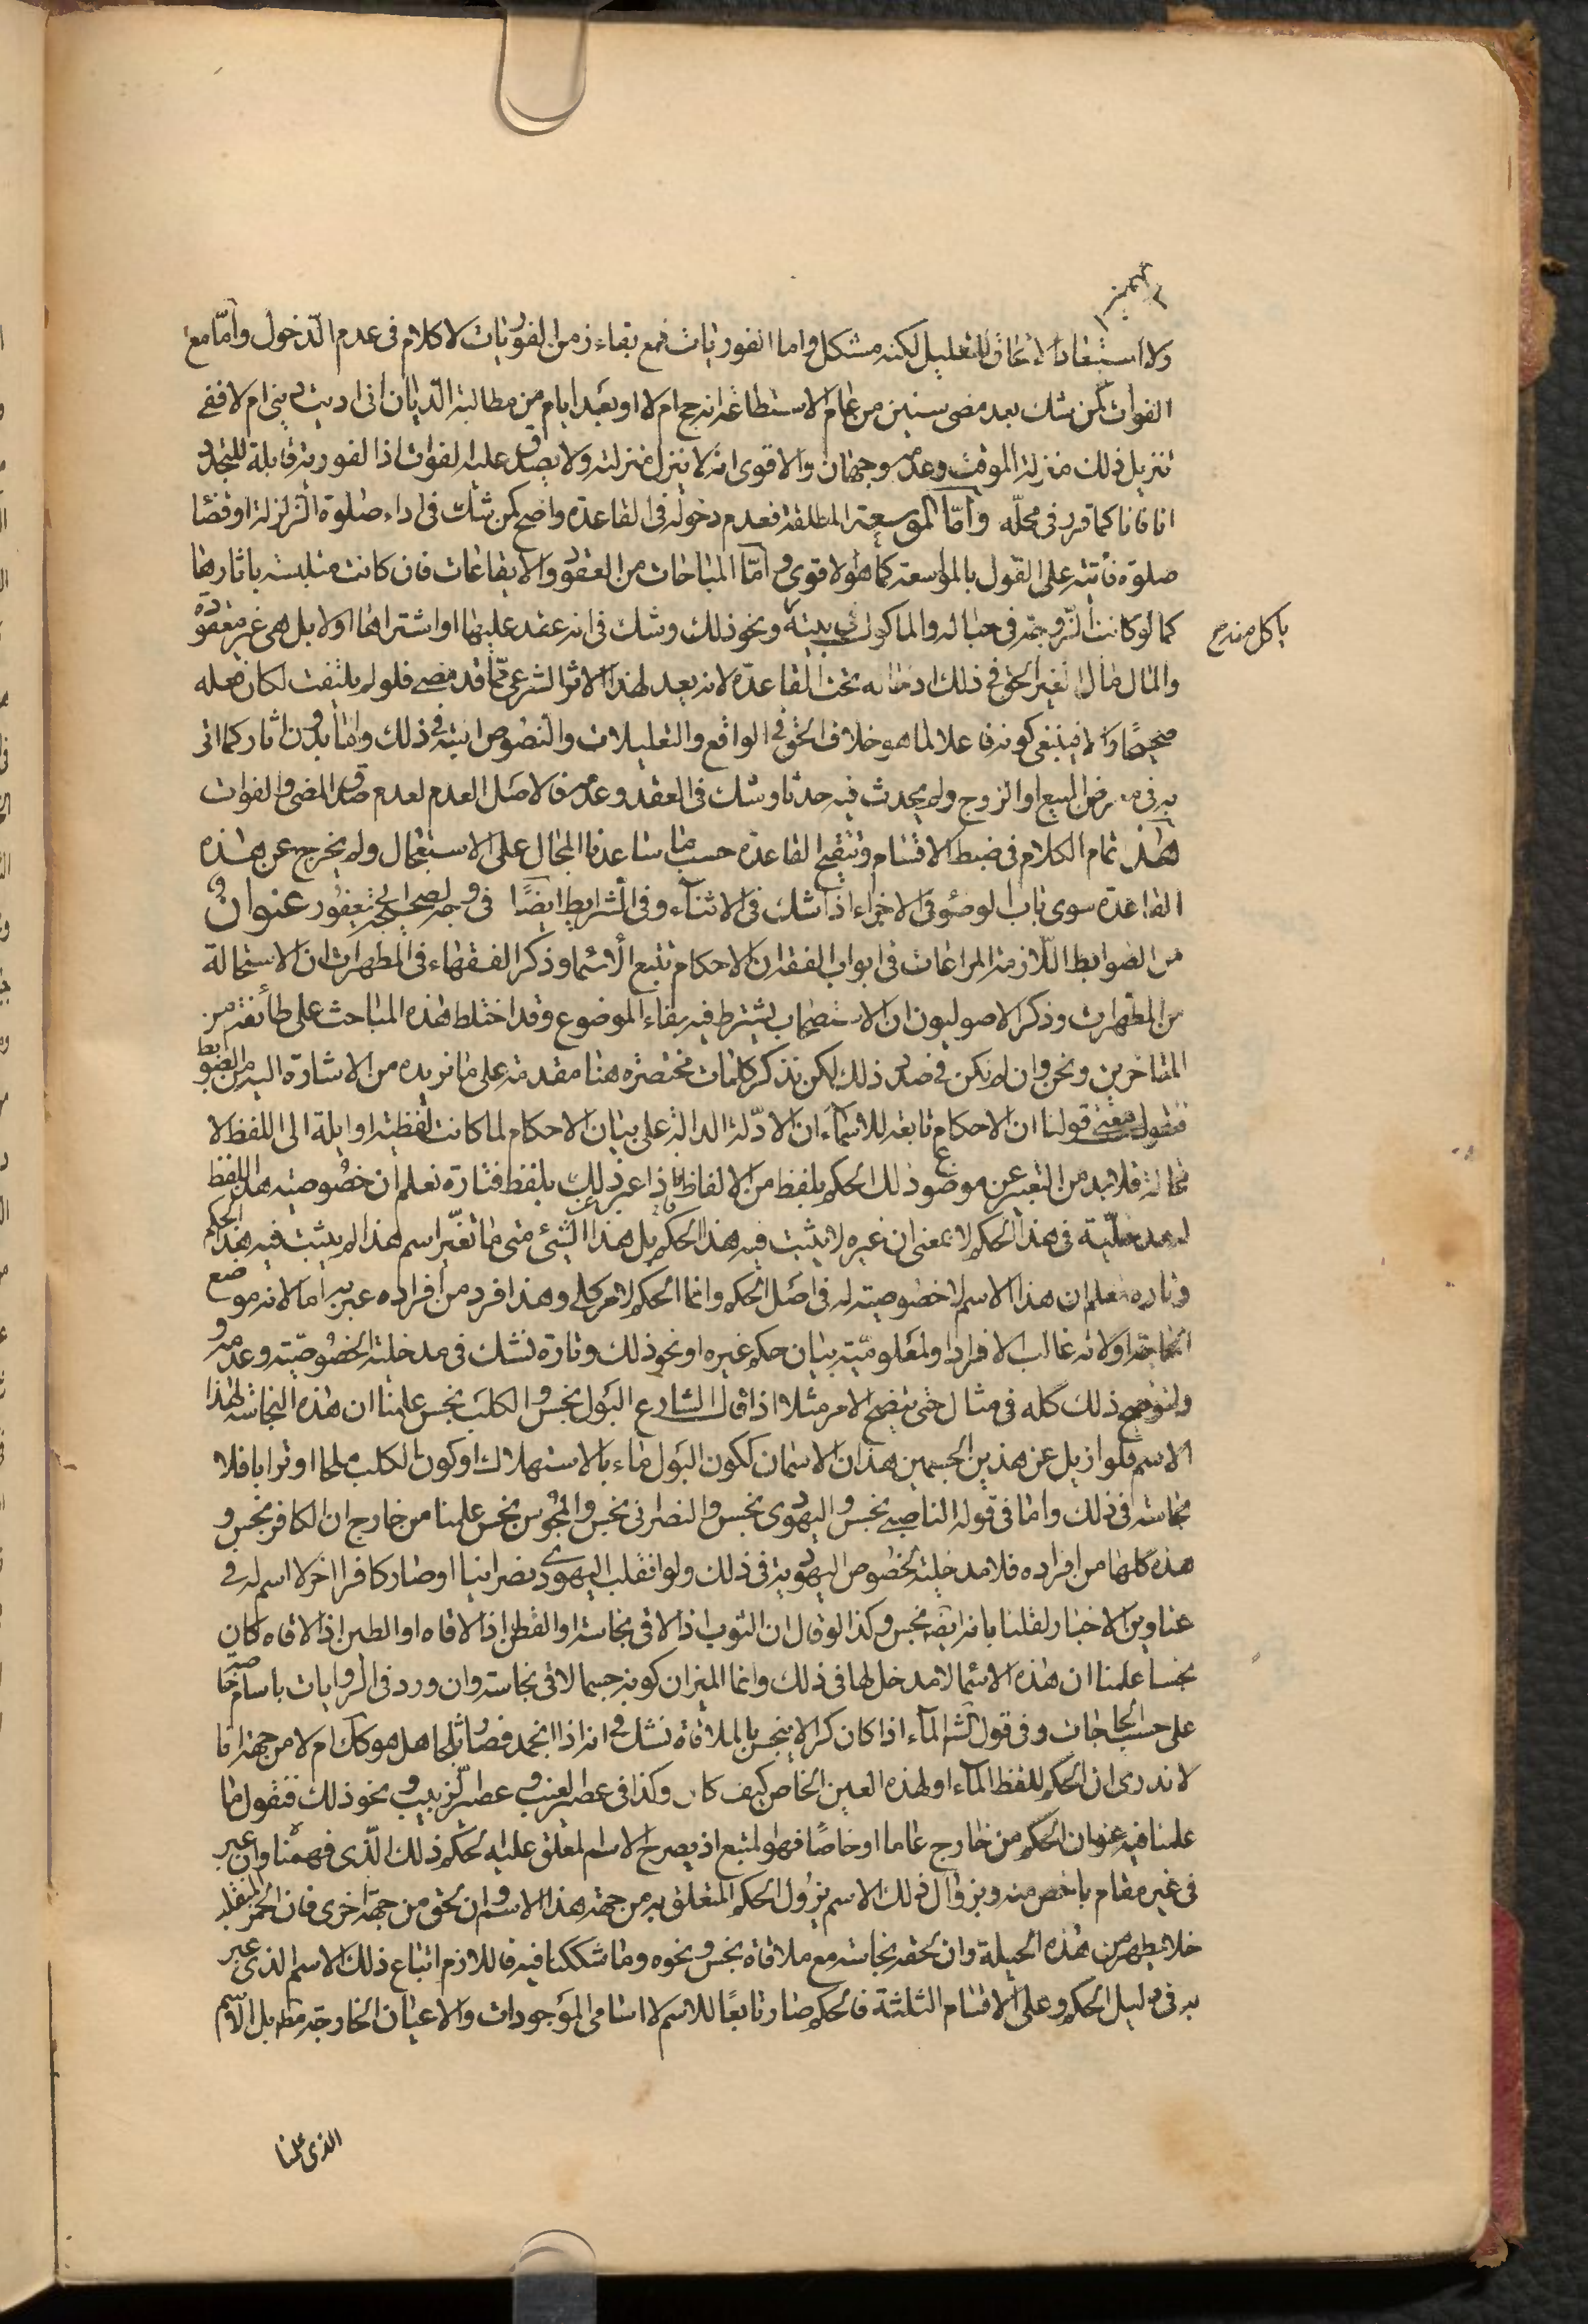 ولا استبعاد الالحاق للتعليل لكنه مشكل واما الفوريات فمع بقاء زمن الفوريات لا كلام فى عدم الدخول وأمّا مع
الفوات كمن شك بعد مضى سنين من عام الاستطاعة انه حج ام لا او بعد ايام من مطالبة الديان انى اديت دينى ام لا ففى
تنزيل ذلك منزلة الموقت وعدمه وجهان والاقوى انه لا ينزل منزلته ولا يصدق عليه الفوات اذ الفورية قابلة للتجدد
انا فانا كما قرر فى محلّه وأمّا الموسعة المطلقة فعدم دخوله فى القاعدة واضح كمن شك فى اداء صلوة الزلزلة او قضاء
صلوة فائتة على القول بالمواسعة كما هو الاقوى وأمّا المباحات من العقود والايقاعات فان كانت متلبسة باثارها
كما لو كانت الزوجة فى حباله والماكول فى بيته يأكل منه ونحو ذلك وشك فى انه عقد عليها او اشتراها اولا بل هى غير معقودة
والمال مال الغير الحق فى ذلك ادخاله تحت القاعدة لانه بعد لهذا الاثر الشرعى ممّا قد مضى فلو لم يلتفت لكان فعله
صحيحًا والا فينبغى كونه فاعلا لما هو خلاف الحق فى الواقع والتعليلات والنصوص اتية فى ذلك وامّا بدون اثار كما اتى
به فى معرض البيع او الزوج ولم يحدث فيه حدثا وشك فى العقد وعدمه فالاصل العدم لعدم صدق المضى والفوات
هذا تمام الكلام فى ضبط الاقسام وتنقيح القاعدة حسب ما ساعدنا المجال على الاستعجال ولم يخرج عن هذه
القاعدة سوى باب الوضوء فى الاجزاء اذا شك فى الاثناء وفى الشرايط ايضًا فى وجه لصحيحة ابن ابى يعفور عنوان و
من الضوابط اللازمة المراعات فى ابواب الفقه ان الاحكام تتبع الأسماء وذكر الفقهاء فى المطهرات ان الاستحالة
من المطهرات وذكر الاصوليون ان الاستصحاب يشترط فيه بقاء الموضوع وقد اختلط هذه المباحث على طائفة من
المتاخرين ونحن وان لم نكن فى صدد ذلك لكن نذكر كلمات مختصرة هنا مقدمة على ما نريده من الاشارة اليه من الضوابط
فنقول معنى قولنا ان الاحكام تابعة للاسماء ان الادّلة الدالة على بيان الاحكام لما كانت لفظية او ايلة الى اللفظ لا
محالة فلابد من التعبير عن موضوع ذلك الحكم بلفظ من الالفاظ فاذا عبر ذلك بلفظ فتارة نعلم ان خصوصية هذا اللفظ
له مدخليّة فى هذا الحكم لا بمعنى ان غيره لا يثبت فيه هذا الحكم بل هذا الشئ متى ما تغيّر اسم هذا لم يثبت فيه هذا الحكم
وتارة نعلم ان هذا الاسم لا خصوصية له فى اصل الحكم وانما الحكم لامر كلى وهذا فرد من أفراده عبر به اما لانه موضع
الحاجة او لانه غالب الافراد او لمعلوميّة بيان حكم غيره او نحو ذلك وتارة نشك فى مدخلية الخصوصيّة وعدمه و
لنوضح ذلك كله فى مثال حتى يتضح الامر مثلا اذا قال الشارع البول نجس والكلب نجس علمنا ان هذه النجاسة لهذا
الاسم فلو ازيل عن هذين الجسمين هذان الاسمان ككون البول ماء بالاستهلاك او كون الكلب ملحا او ترابا فلا
نجاسة فى ذلك واما فى قوله الناصبى نجس واليهودى نجس والنصرانى نجس والمجوس نجس علمنا من خارج ان الكافر نجس و
هذه كلها من افراده فلا مدخلية لخصوص اليهودية فى ذلك ولو انقلب اليهودى نصرانيا او صار كافرا اخر لا اسم له فى
عناوين الاخبار لقلنا بانه ايضا نجس وكذا لو قال ان الثوب اذا لاقى نجاسة او القطن اذا لاقاه او الطين اذا لاقاه كان
نجسا علمنا ان هذه الاسماء لا مدخل لها فى ذلك وانما الميزان كونه جسما لاقى نجاسة وان ورد فى الروايات باسام خاصة
على حسب الحاجات وفى قول الماء اذا كان كرا لا ينجس بالملاقاة نشك فى انه اذا انجمد فصار ثلجا هل هو كك ام لا من جهة انا
لا ندرى ان الحكم للفظ الماء او لهذه العين الخاص كيف كان وكذا فى عصير العنب وعصير الزبيب ونحو ذلك فنقول ما
علمنا فيه عنوان الحكم من خارج عاما او خاصًا فهو المتبع اذ يصرح الاسم المعلق عليه لحكم ذلك الّذى فهمناه وان عبر
فى غير مقام باخص منه وبزوال ذلك الاسم يزول الحكم المتعلق به من جهة هذا الاسم وان لحق من جهة اخرى فان الخمر المنقلب
خلا يطهر من هذه الحيلة وان لحقه نجاسة مع ملاقاة نجس ونحوه وما شككنا فيه فاللازم اتباع ذلك الاسم الذى عبر
به فى دليل الحكم وعلى الاقسام الثلثة فالحكم صار تابعًا للاسم لا اسامى الموجودات والاعيان الخارجة مط بل الاسم
ياكل منه صح
الذى علمنا